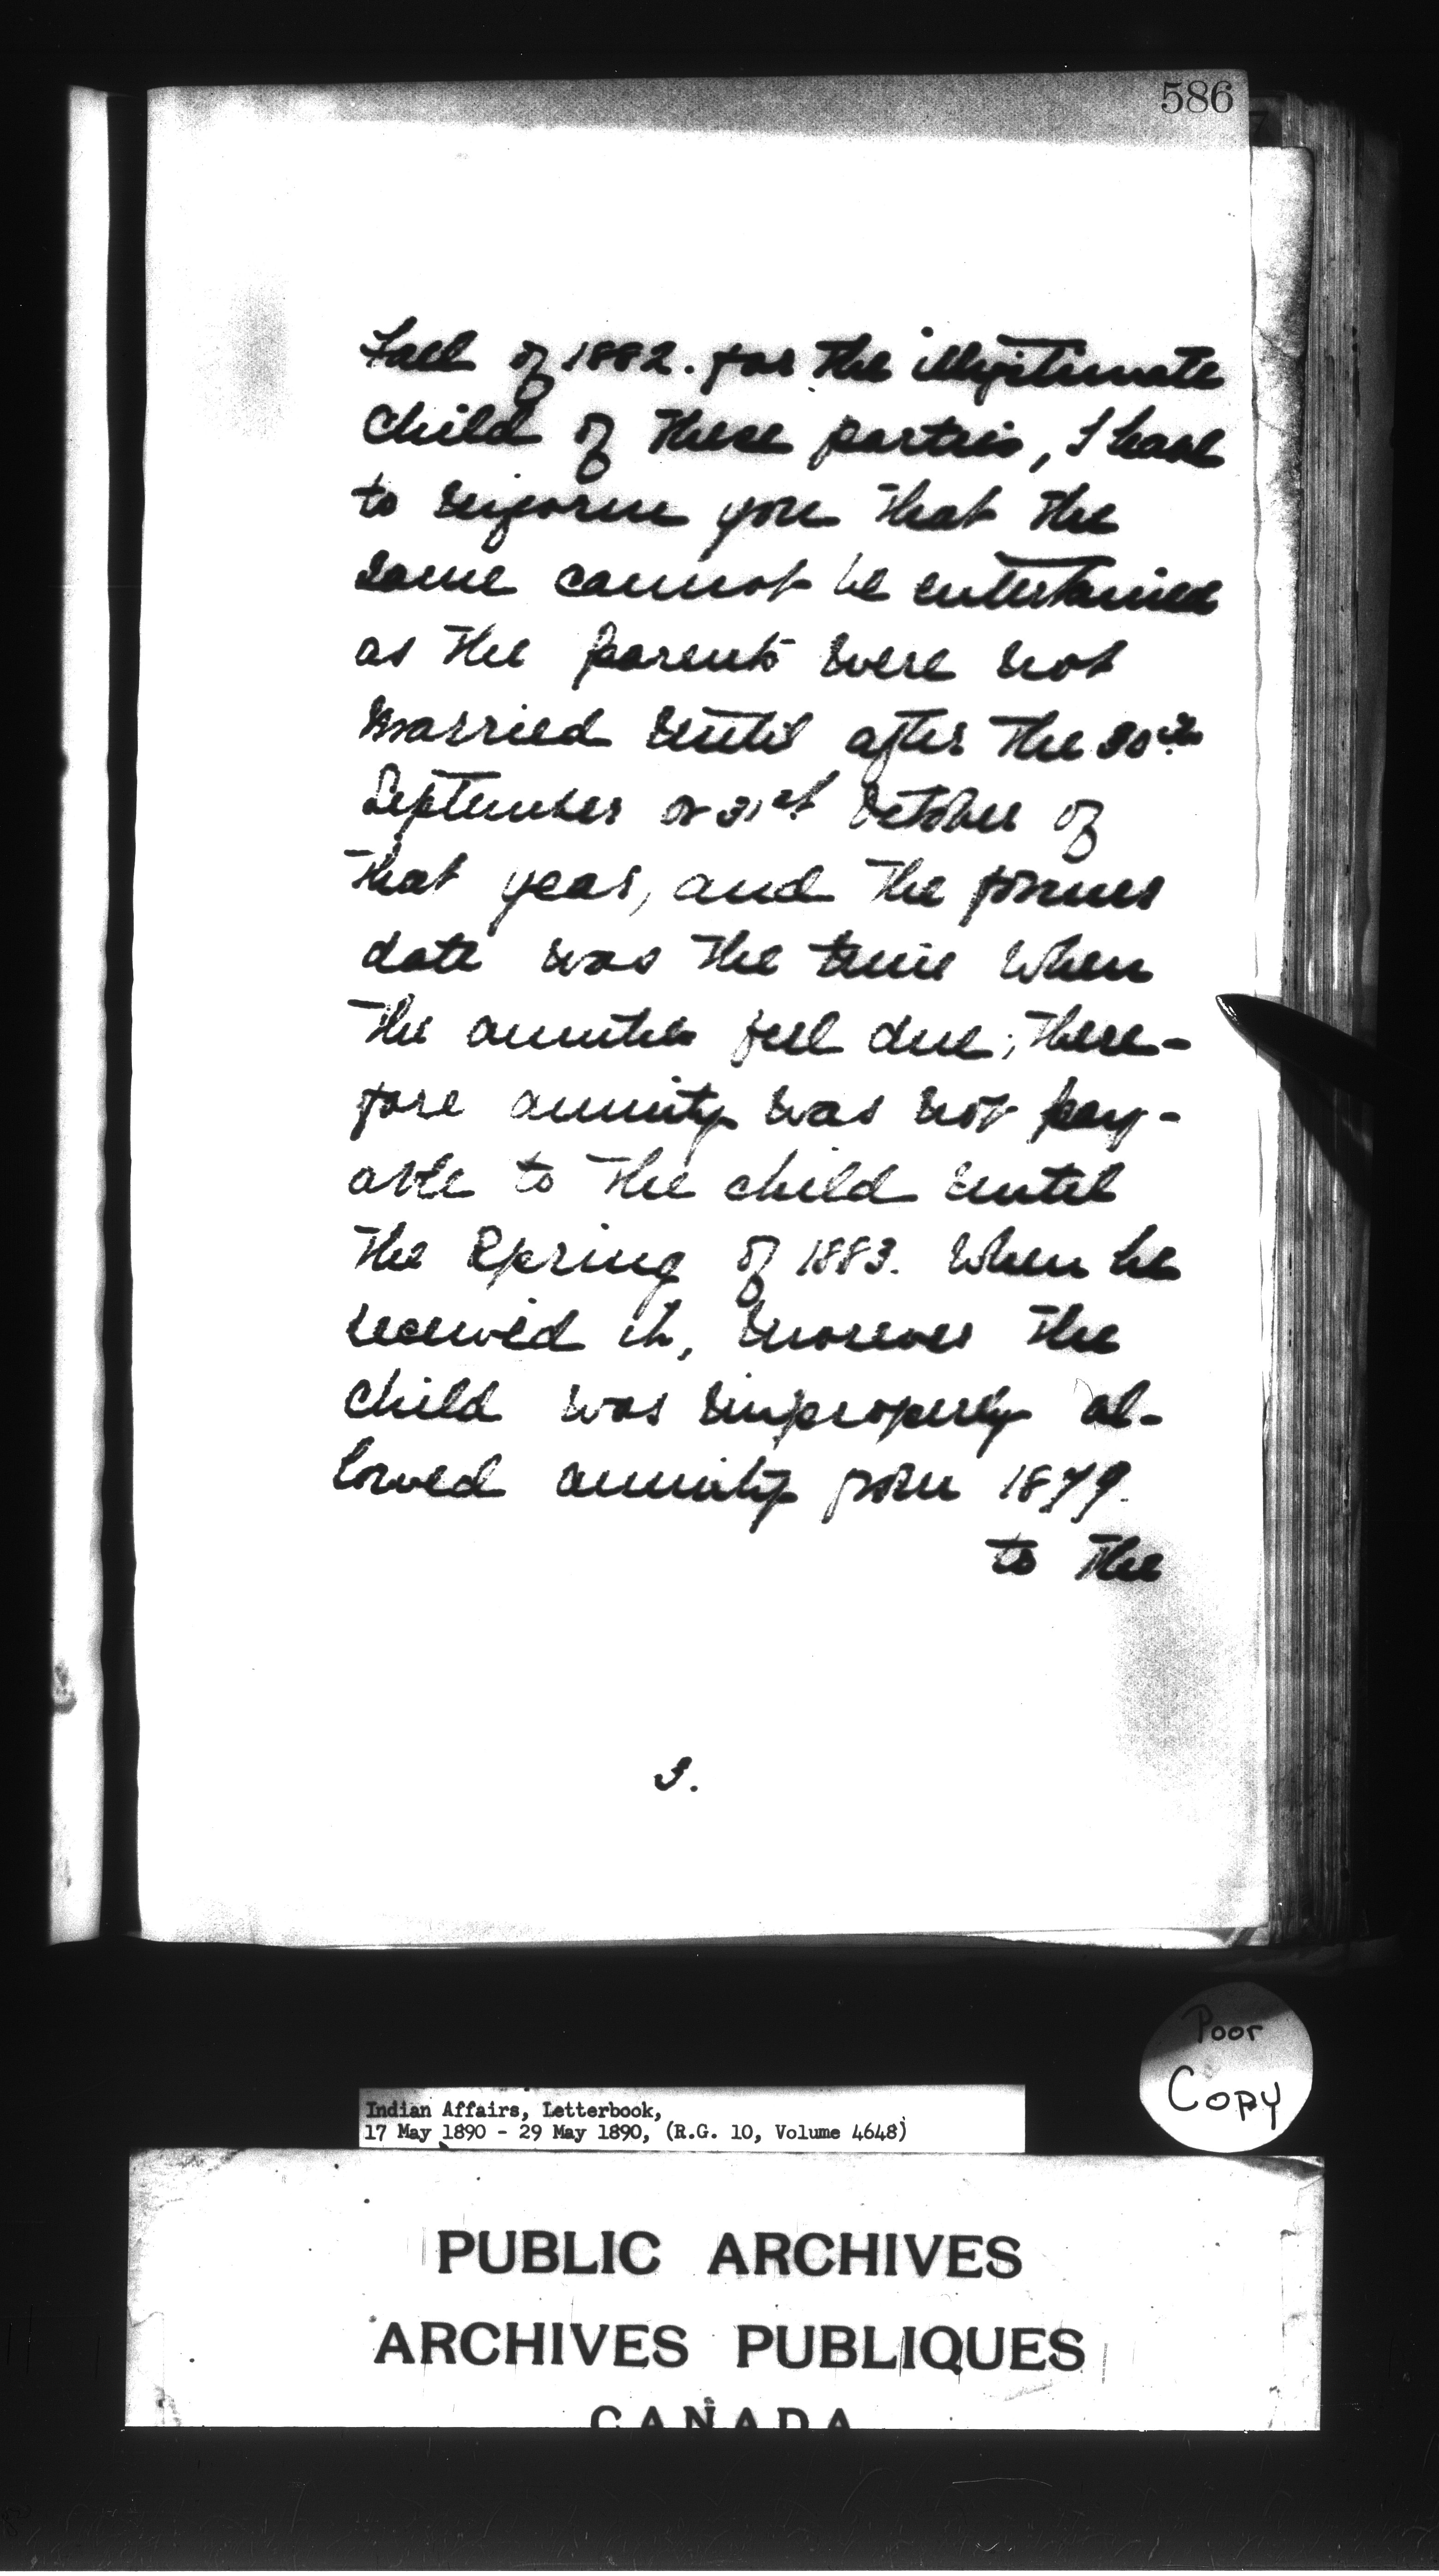 586
Fall of 1882. for the illegitimate
child of these parties, I have
to inform you that the
same cannot be entertained
as the parents were not
married until after the 30th
September or 31st October of
that year, and the former
date was the time when
the annuities fell due; there-
fore annuity was not pay-
able to the child until
the Spring of 1883. when he
received it, moreover the
child was improperly al-
lowed annuity from 1879.
to the
3.
Poor
Copy
Indian Affairs, Letterbook,
17 May 1890 - 29 May 1890, (R.G. 10, Volume 4648)
PUBLIC ARCHIVES
ARCHIVES PUBLIQUES
CANADA